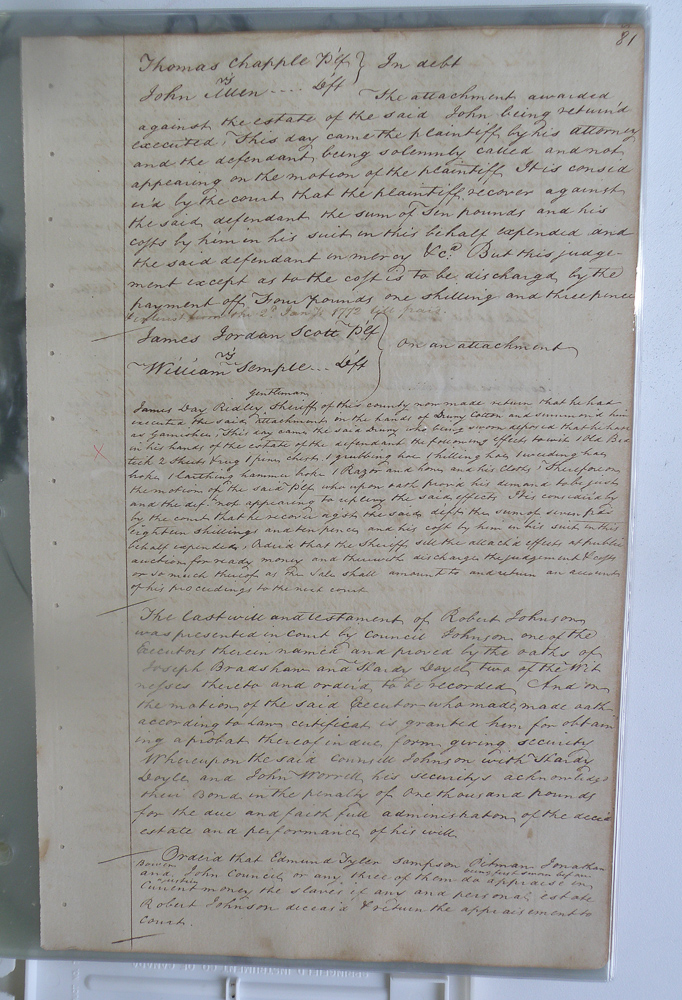 81
Thomas Chapple Plf } In debt
vs
John Allen .... Deft The attachment awarded
against the estate of the said John being return'd
executed, This day came the plaintiff by his attorney
and the defendant being solemnly called and not
appearing on the motion of the plaintiff It is consid
er'd by the court that the plaintiff recover against
the said defendant the sum of Ten pounds and his
costs by him in his suit in this behalf expended and
the said defendant in mercy &c.a But this judge-
ment except as to the cost is to be discharg'd by the
payment off Four pounds one shilling and three pence
1772 till paid.
James Jordan Scott Plf }
vs On an attachment
William Semple... Deft
Gentleman
James Day Ridley Sheriff of this county now made return that he had
executed the said attachment in the hands of Drury Cotton and summon'd him
as Garnishee, This day came the said Drury who being sworn deposed that he have
in his hands of the estate of the defendant the following effects to wit 1 Old Bed
tick 2 Sheets & rug 1 pine chest, 1 grubbing hoe 1 hilling hoe, 1 weeding hoe
1 lathing hammer 1 Razor and hone and his cloths, Therefore on
the motion of the said Plf who upon oath prov'd his demand to be just
and the deft not appearing to replevy the said effects It is consider'd by
by the court that he recover agst the said deft the sum of seven
Eighteen shillings and ten pence and his cost by him in his suit in this
behalf expended, Order'd that the Sheriff sell the attach'd effects at public
auction for ready money and therewith discharge the judgement & costs
or so much thereof as the Sale shall amount to and return an account
of his proceedings to the next court
The last will and testament of Robert Johnson
was presented in Court by Council Johnson one of the
Executors therein named and proved by the oaths of
Joseph Bradshaw and Hardy Doyel two of the Wit
nesses thereto and order'd to be recorded And on
the motion of the said Executor who made made oath
according to Law certificate is granted him for obtain
ing a probat thereof in due form giving security
Whereupon the said Councill Johnson with Hardy
Doyle and John Worrell his securitys acknowledge
their Bond in the penalty of One thousand pounds
for the due and faithfull administration of the deced
estate and performance of his will
Order'd that Edmund Tyler Sampson Pitman Jonathan
being first sworn before
and John Council or any three of them do appraise in
a justice
Current money the slaves if any and personal estate
Robert Johnson deceas'd & return the appraisement to
Court.